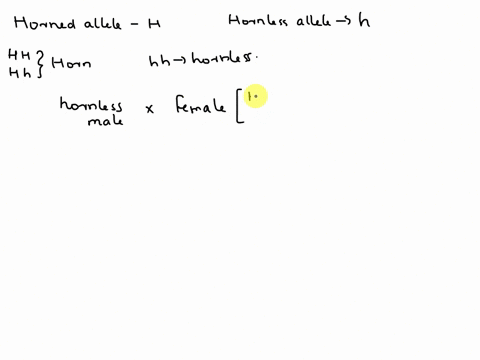 Horned allele - H    Hornless allele → h
HH
Hh } Horn    hh → hornless.
hornless male x Female [